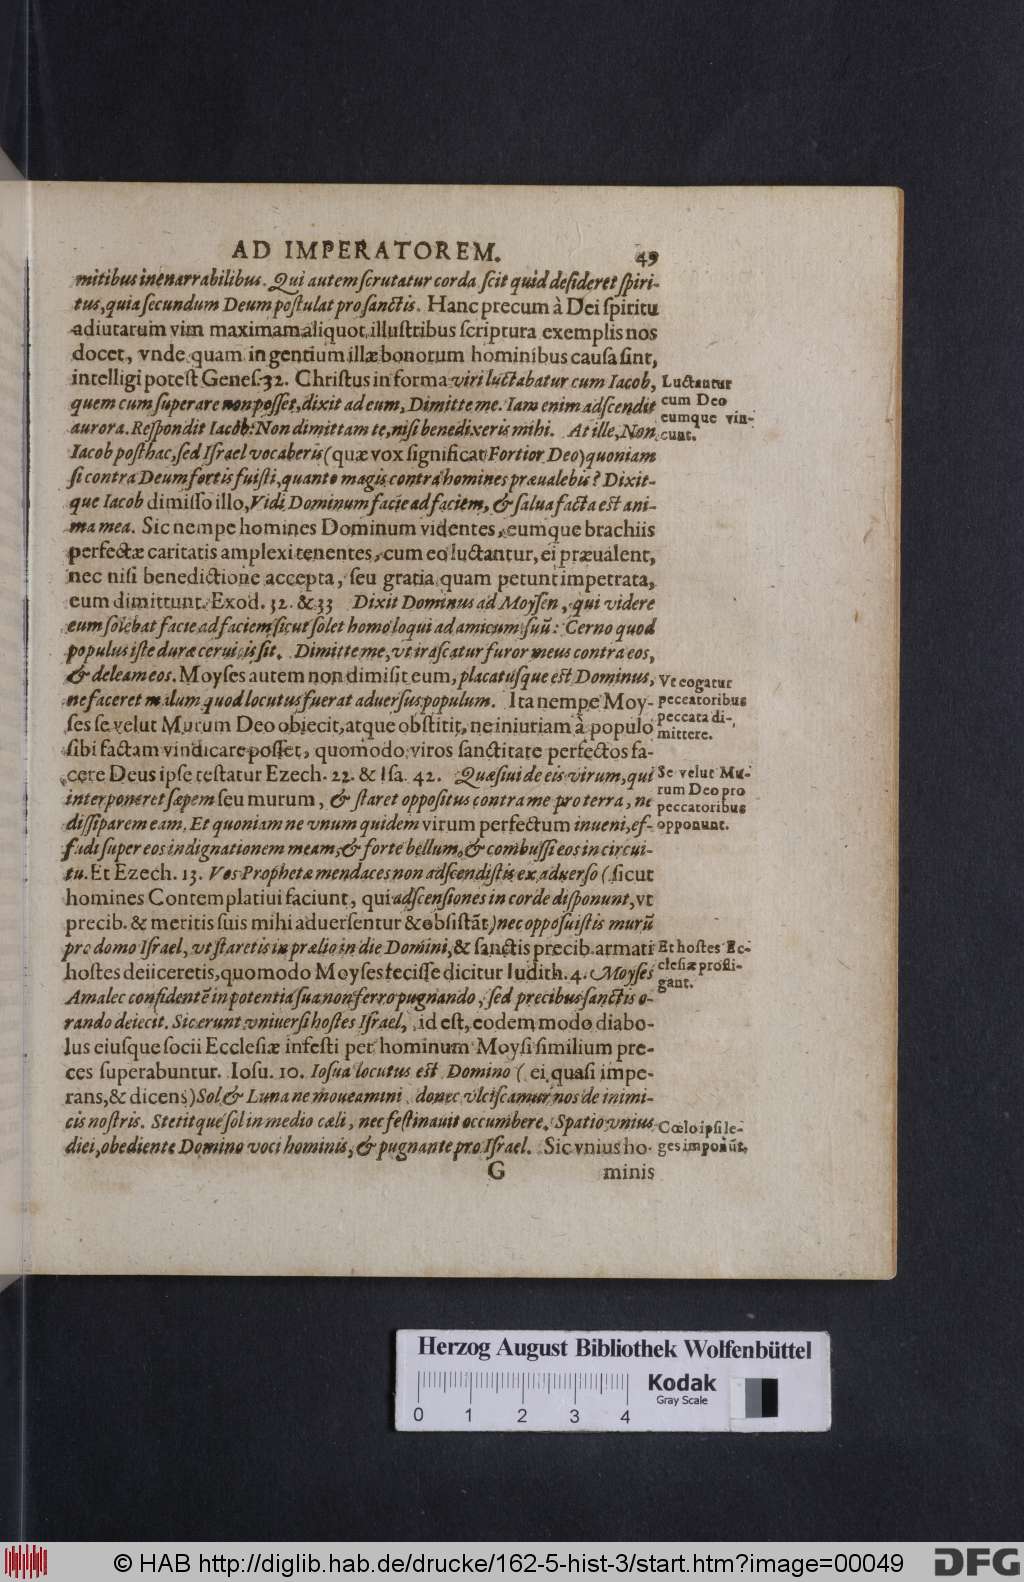 AD IMPERATOREM. 49
mitibus inenarrabilibus. Qui autem ſcrutatur corda ſcit quid deſideret ſpiri-
tus, quia ſecundum Deum poſtulat pro ſanctis. Hanc precum à Dei ſpiritu
adiutarum vim maximam aliquot illuſtribus ſcriptura exemplis nos
docet, vnde quam ingentium illæ bonorum hominibus cauſa ſint,
intelligi poteſt Geneſ. 32. Chriſtus in forma viri luctabatur cum Iacob,
quem cum ſuperare non poſſet, dixit ad eum, Dimitte me. Iam enim adſcendit
aurora. Reſpondit Iacob: Non dimittam te, niſi benedixeris mihi. At ille, Non
Iacob poſthac, ſed Iſrael vocaberis (quæ vox ſignificat Fortior Deo) quoniam
ſi contra Deum fortis fuiſti, quanto magis contra homines præualebis? Dixit-
que Iacob dimiſſo illo, Vidi Dominum facie ad faciem, & ſalua facta est ani-
ma mea. Sic nempe homines Dominum videntes, eumque brachiis
perfectæ caritatis amplexi tenentes, cum eo luctantur, ei præualent,
nec niſi benedictione accepta, ſeu gratia quam petunt impetrata,
eum dimittunt. Exod. 32. & 33 Dixit Dominus ad Moyſen, qui videre
eum ſolebat facie ad faciem ſicut ſolet homo loqui ad amicum ſuū: Cerno quod
populus iſte duræ ceruicis ſit. Dimitte me, vt iraſcatur furor meus contra eos,
& deleam eos. Moyſes autem non dimiſit eum, placatuſque eſt Dominus,
ne faceret malum quod locutus fuerat aduerſus populum. Ita nempe Moy-
ſes ſe velut Murum Deo obiecit, atque obſtitit, ne iniuriam à populo
ſibi factam vindicare poſſet, quomodo viros ſanctitate perfectos fa-
cere Deus ipſe teſtatur Ezech. 22. & Iſa. 42. Quæſiui de eis virum, qui
interponeret ſæpem ſeu murum, & ſtaret oppoſitus contra me pro terra, ne
diſſiparem eam. Et quoniam ne vnum quidem virum perfectum inueni, ef-
fudi ſuper eos indignationem meam, & forte bellum, & combuſſi eos in circui-
tu. Et Ezech. 13. Vos Prophetæ mendaces non adſcendiſtis ex aduerſo (ſicut
homines Contemplatiui faciunt, qui adſcenſiones in corde diſponunt, vt
precib. & meritis ſuis mihi aduerſentur & obſiſtāt) nec oppoſuiſtis murū
pro domo Iſrael, vt ſtaretis in prælio in die Domini, & ſanctis precib. armati
hoſtes deiiceretis, quomodo Moyſes feciſſe dicitur Iudith. 4. Moyſes
Amalec confidentē in potentia ſua non ferro pugnando, ſed precibus ſanctis o-
rando deiecit. Sic erunt vniuerſi hoſtes Iſrael, id eſt, eodem modo diabo-
lus eiuſque ſocii Eccleſiæ infeſti per hominum Moyſi ſimilium pre-
ces ſuperabuntur. Ioſu. 10. Ioſua locutus eſt Domino (ei quaſi impe-
rans, & dicens) Sol & Luna ne moueamini donec vlciſcamur nos de inimi-
cis noſtris. Stetitque ſol in medio cæli, nec feſtinauit occumbere, Spatio vnius
diei, obediente Domino voci hominis, & pugnante pro Iſrael. Sic vnius ho-
G minis
Luctantur
cum Deo
eumque vin-
cunt.
Vt cogatur
peccatoribus
peccata di-
mittere.
Se velut Mu-
rum Deo pro
peccatoribus
opponunt.
Et hoſtes Ec-
cleſiæ profli-
gant.
Cœlo ipſi le-
ges imponūt.
Herzog August Bibliothek Wolfenbüttel
Kodak
Gray Scale
0 1 2 3 4
© HAB http://diglib.hab.de/drucke/162-5-hist-3/start.htm?image=00049
DFG